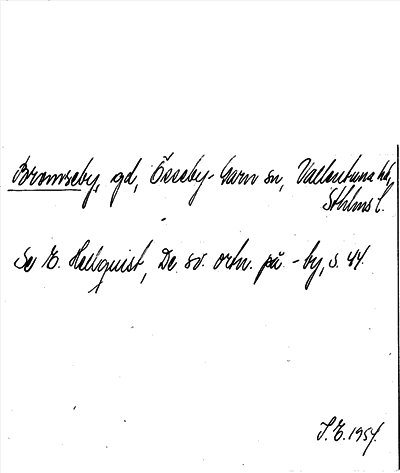 Bromseby, gd, Össeby-Garn sn, Vallentuna hd,
Sthlms l.
Se E. Hellquist, De sv. ortn. på -by, s. 44.
S.E. 1957.